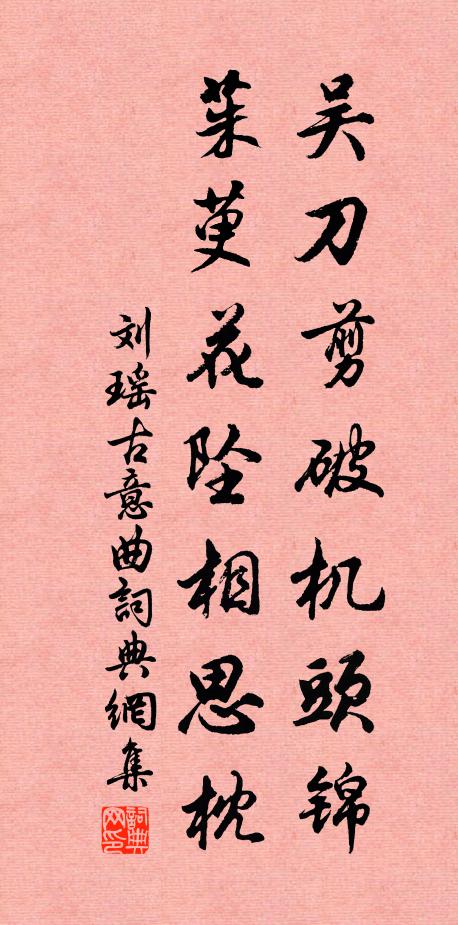 吴刀剪破机頭锦
茱萸花坠相思枕
刘瑶古意曲詞典網集
詞典网印